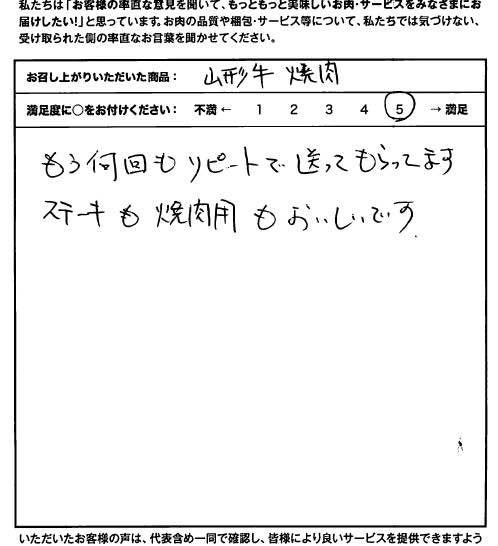 私たちは「お客様の率直な意見を聞いて、もっともっと美味しいお肉・サービスをみなさまにお
届けしたい!」と思っています。お肉の品質や梱包・サービス等について、私たちでは気づけない、
受け取られた側の率直なお言葉を聞かせてください。
お召し上がりいただいた商品： 山形牛 焼肉
満足度に○をお付けください： 不満 ← 1 2 3 4 5 → 満足
もう何回もリピートで送ってもらってます
ステーキも焼肉用もおいしいです
いただいたお客様の声は、代表含め一同で確認し、皆様により良いサービスを提供できますよう